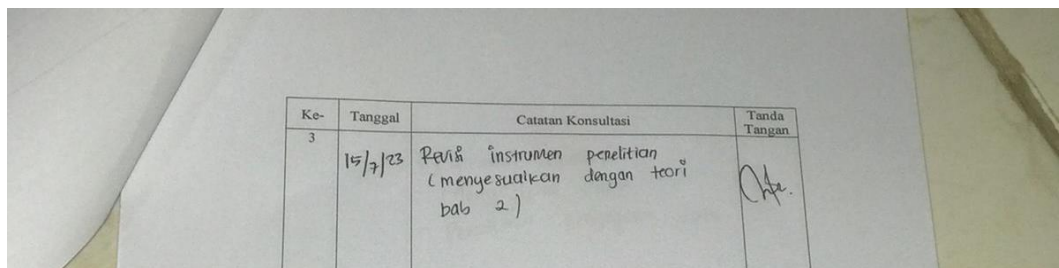 Ke- Tanggal Catatan Konsultasi Tanda
Tangan
3
15/7/23 Revisi instrumen penelitian
(menyesuaikan dengan teori
bab 2)